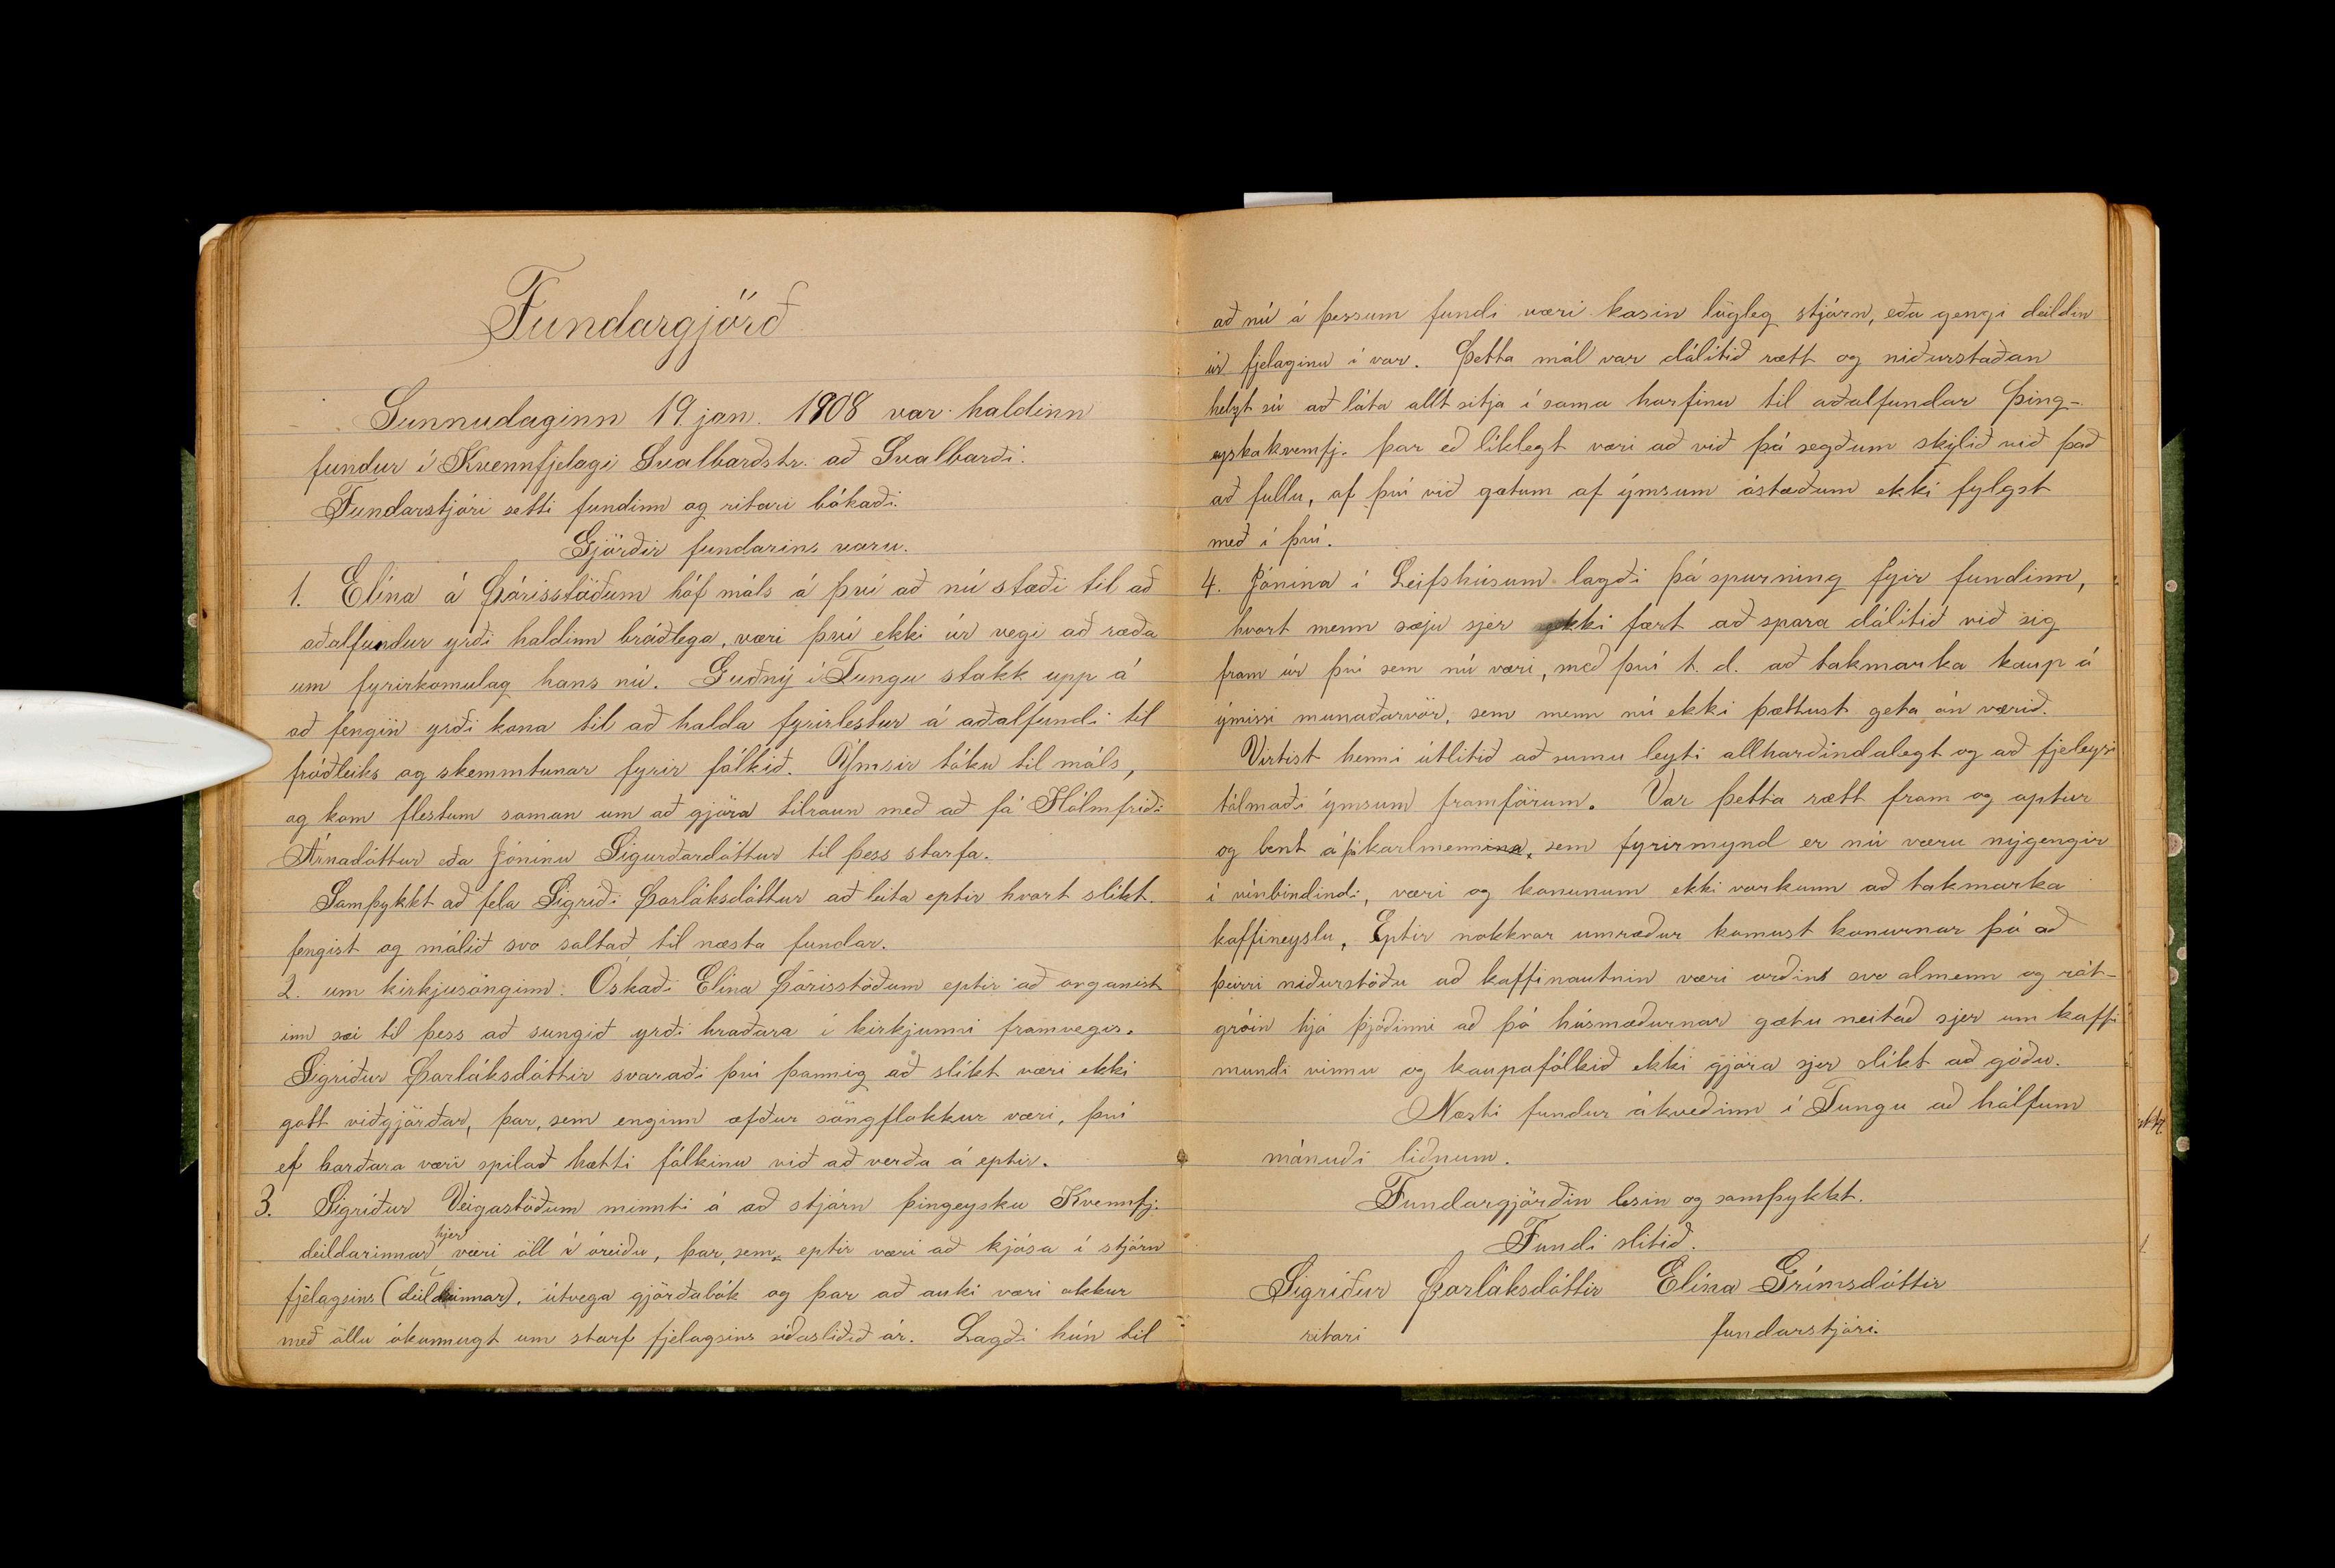 Fundargjörð
Sunnudaginn 19. jan. 1908 var haldinn
fundur í Kvennfjelagi Svalbarðstr. að Svalbarði.
Fundarstjóri setti fundinn og ritari bókaði.
Gjörðir fundarins voru.
1. Elína á Þórisstöðum hóf máls á því að nú stæði til að
aðalfundur yrði haldinn bráðlega, væri því ekki úr vegi að ræða
um fyrirkomulag hans nú. Guðný í Tungu stakk upp á
að fengin yrði kona til að halda fyrirlestur á aðalfundi til
fróðleiks og skemmtunar fyrir fólkið. Ýmsir tóku til máls,
og kom flestum saman um að gjöra tilraun með að fá Hólmfríði
Árnadóttur eða Jónínu Sigurðardóttur til þess starfa.
Samþykkt að fela Sigríði Þorláksdóttur að leita eptir hvort slíkt
fengist og málið svo saltað til næsta fundar.
2. um kirkjusönginn. Óskaði Elína Þórisstöðum eptir að organist
inn sæi til þess að sungið yrði hraðara í kirkjunni framvegis.
Sigríður Þorláksdóttir svaraði því þannig að slíkt væri ekki
gott viðgjörðar, þar, sem enginn æfður söngflokkur væri, því
ef harðara væri spilað hætti fólkinu við að verða á eptir.
3. Sigríður Veigastöðum minnti á að stjórn þingeysku Kvennfj.
deildarinnar hjer væri öll í óreiðu, þar, sem eptir væri að kjósa í stjórn
fjelagsins (deildarinnar), útvega gjörðabók og þar að auki væri okkur
með öllu ókunnugt um starf fjelagsins síðasliðið ár. Lagði hún til
að nú á þessum fundi væri kosin lögleg stjórn, eða gengi deildin
úr fjelaginu í vor. Þetta mál var dálítið rætt og niðurstaðan
helzt sú að láta allt sitja í sama horfinu til aðalfundar Þing-
eyskakvennfj. þar eð líklegt væri að við þá segðum skilið við það
að fullu, af því við gætum af ýmsum ástæðum ekki fylgst
með í því.
4. Jónína í Leifshúsum lagði þá spurning fyir fundinn,
hvort menn sæju sjer ekki fært að spara dálítið við sig
fram úr því sem nú væri, með því t.d. að takmarka kaup á
ýmissi munaðarvör, sem menn nú ekki þættust geta án værið.
Virtist henni útlitið að sumu leyti allharðindalegt og að fjeleysi
tálmaði ýmsum framförum. Var þetta rætt fram og aptur
og bent á þá karlmennina, sem fyrirmynd er nú væru nýgengir
í vínbindindi, væri og konunum ekki vorkunn að takmarka
kaffineyslu. Eptir nokkrar umræður komust konurnar þó að
þeirri niðurstöðu að kaffinautnin væri orðin svo almenn og rót-
gróin hjá þjóðinni að þó húsmæðurnar gætu neitað sjer um kaffi
mundi vinnu og kaupafólkið ekki gjöra sjer slíkt að góðu.
Næsti fundur ákveðinn í Tungu að hálfum
mánuði liðnum.
Fundargjörðin lesin og samþykkt.
Fundi slitið.
Sigríður Þorláksdóttir Elína Grímsdóttir
ritari fundarstjóri.